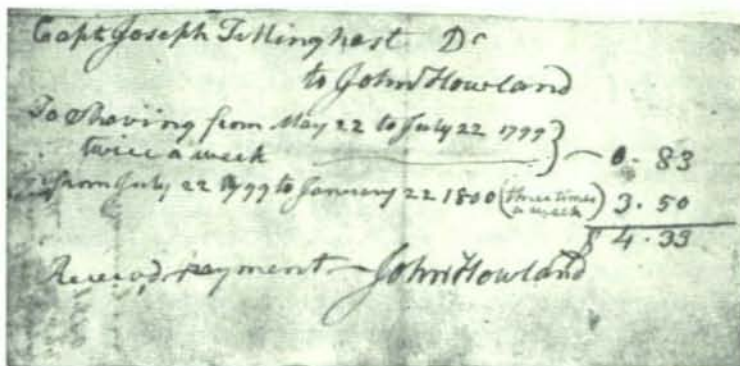 Capt Joseph Tillinghast Dr
to John Howland
To Shaving from May 22 to July 22 1799
twice a week 0.83
from July 22 1799 to January 22 1800 (three times a week) 3.50
$ 4.33
Received payment John Howland